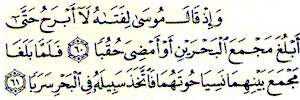 وَإِذْ قَالَ مُوسَىٰ لِفَتَىٰهُ لَآ أَبْرَحُ حَتَّىٰٓ
أَبْلُغَ مَجْمَعَ ٱلْبَحْرَيْنِ أَوْ أَمْضِىَ حُقُبًا ٦٠ فَلَمَّا بَلَغَا
مَجْمَعَ بَيْنِهِمَا نَسِيَا حُوتَهُمَا فَٱتَّخَذَ سَبِيلَهُۥ فِى ٱلْبَحْرِ سَرَبًا ٦١